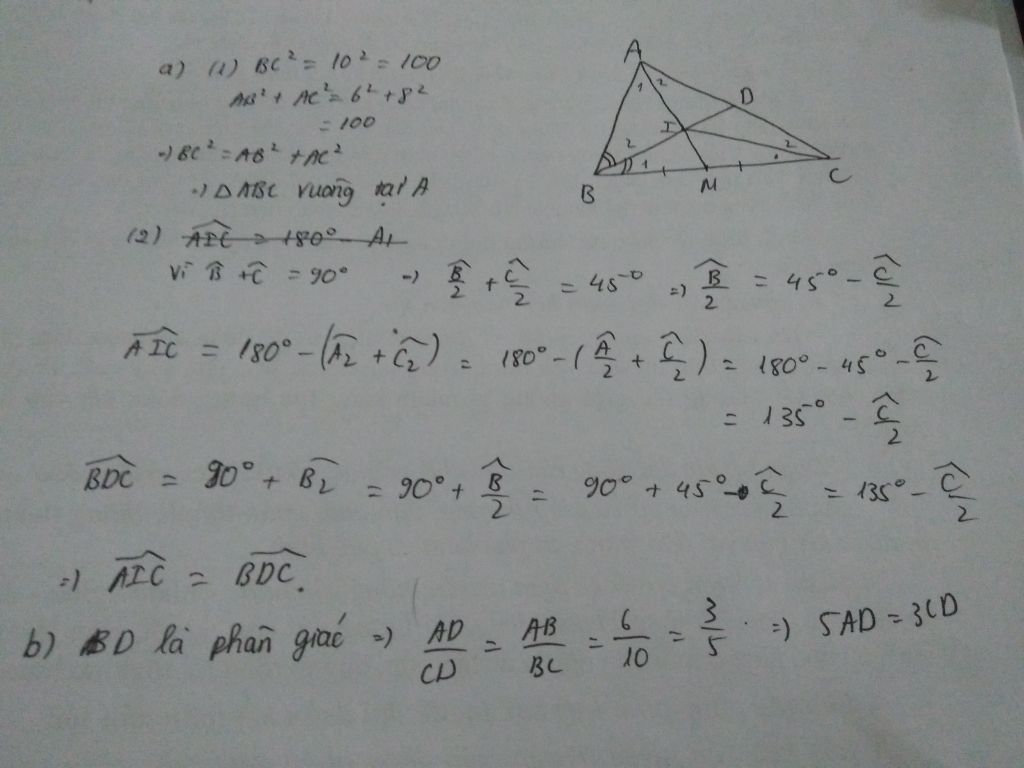 a) (1) BC² = 10² = 100
AB² + AC² = 6² + 8²
= 100
=) BC² = AB² + AC²
=) Δ ABC vuông tại A
A
1 2
D
I
2
1
2
B
M
C
(2) AIC = 180° - A1
Vì B̂ + Ĉ = 90° =) B̂/2 + Ĉ/2 = 45° =) B̂/2 = 45° - Ĉ/2
AIC = 180° - (Â2 + Ĉ2) = 180° - (Â/2 + Ĉ/2) = 180° - 45° - Ĉ/2
= 135° - Ĉ/2
BDC = 90° + B̂2 = 90° + B̂/2 = 90° + 45° - Ĉ/2 = 135° - Ĉ/2
=) AIC = BDC.
b) BD là phân giác =) AD/CD = AB/BC = 6/10 = 3/5 . =) 5AD = 3CD